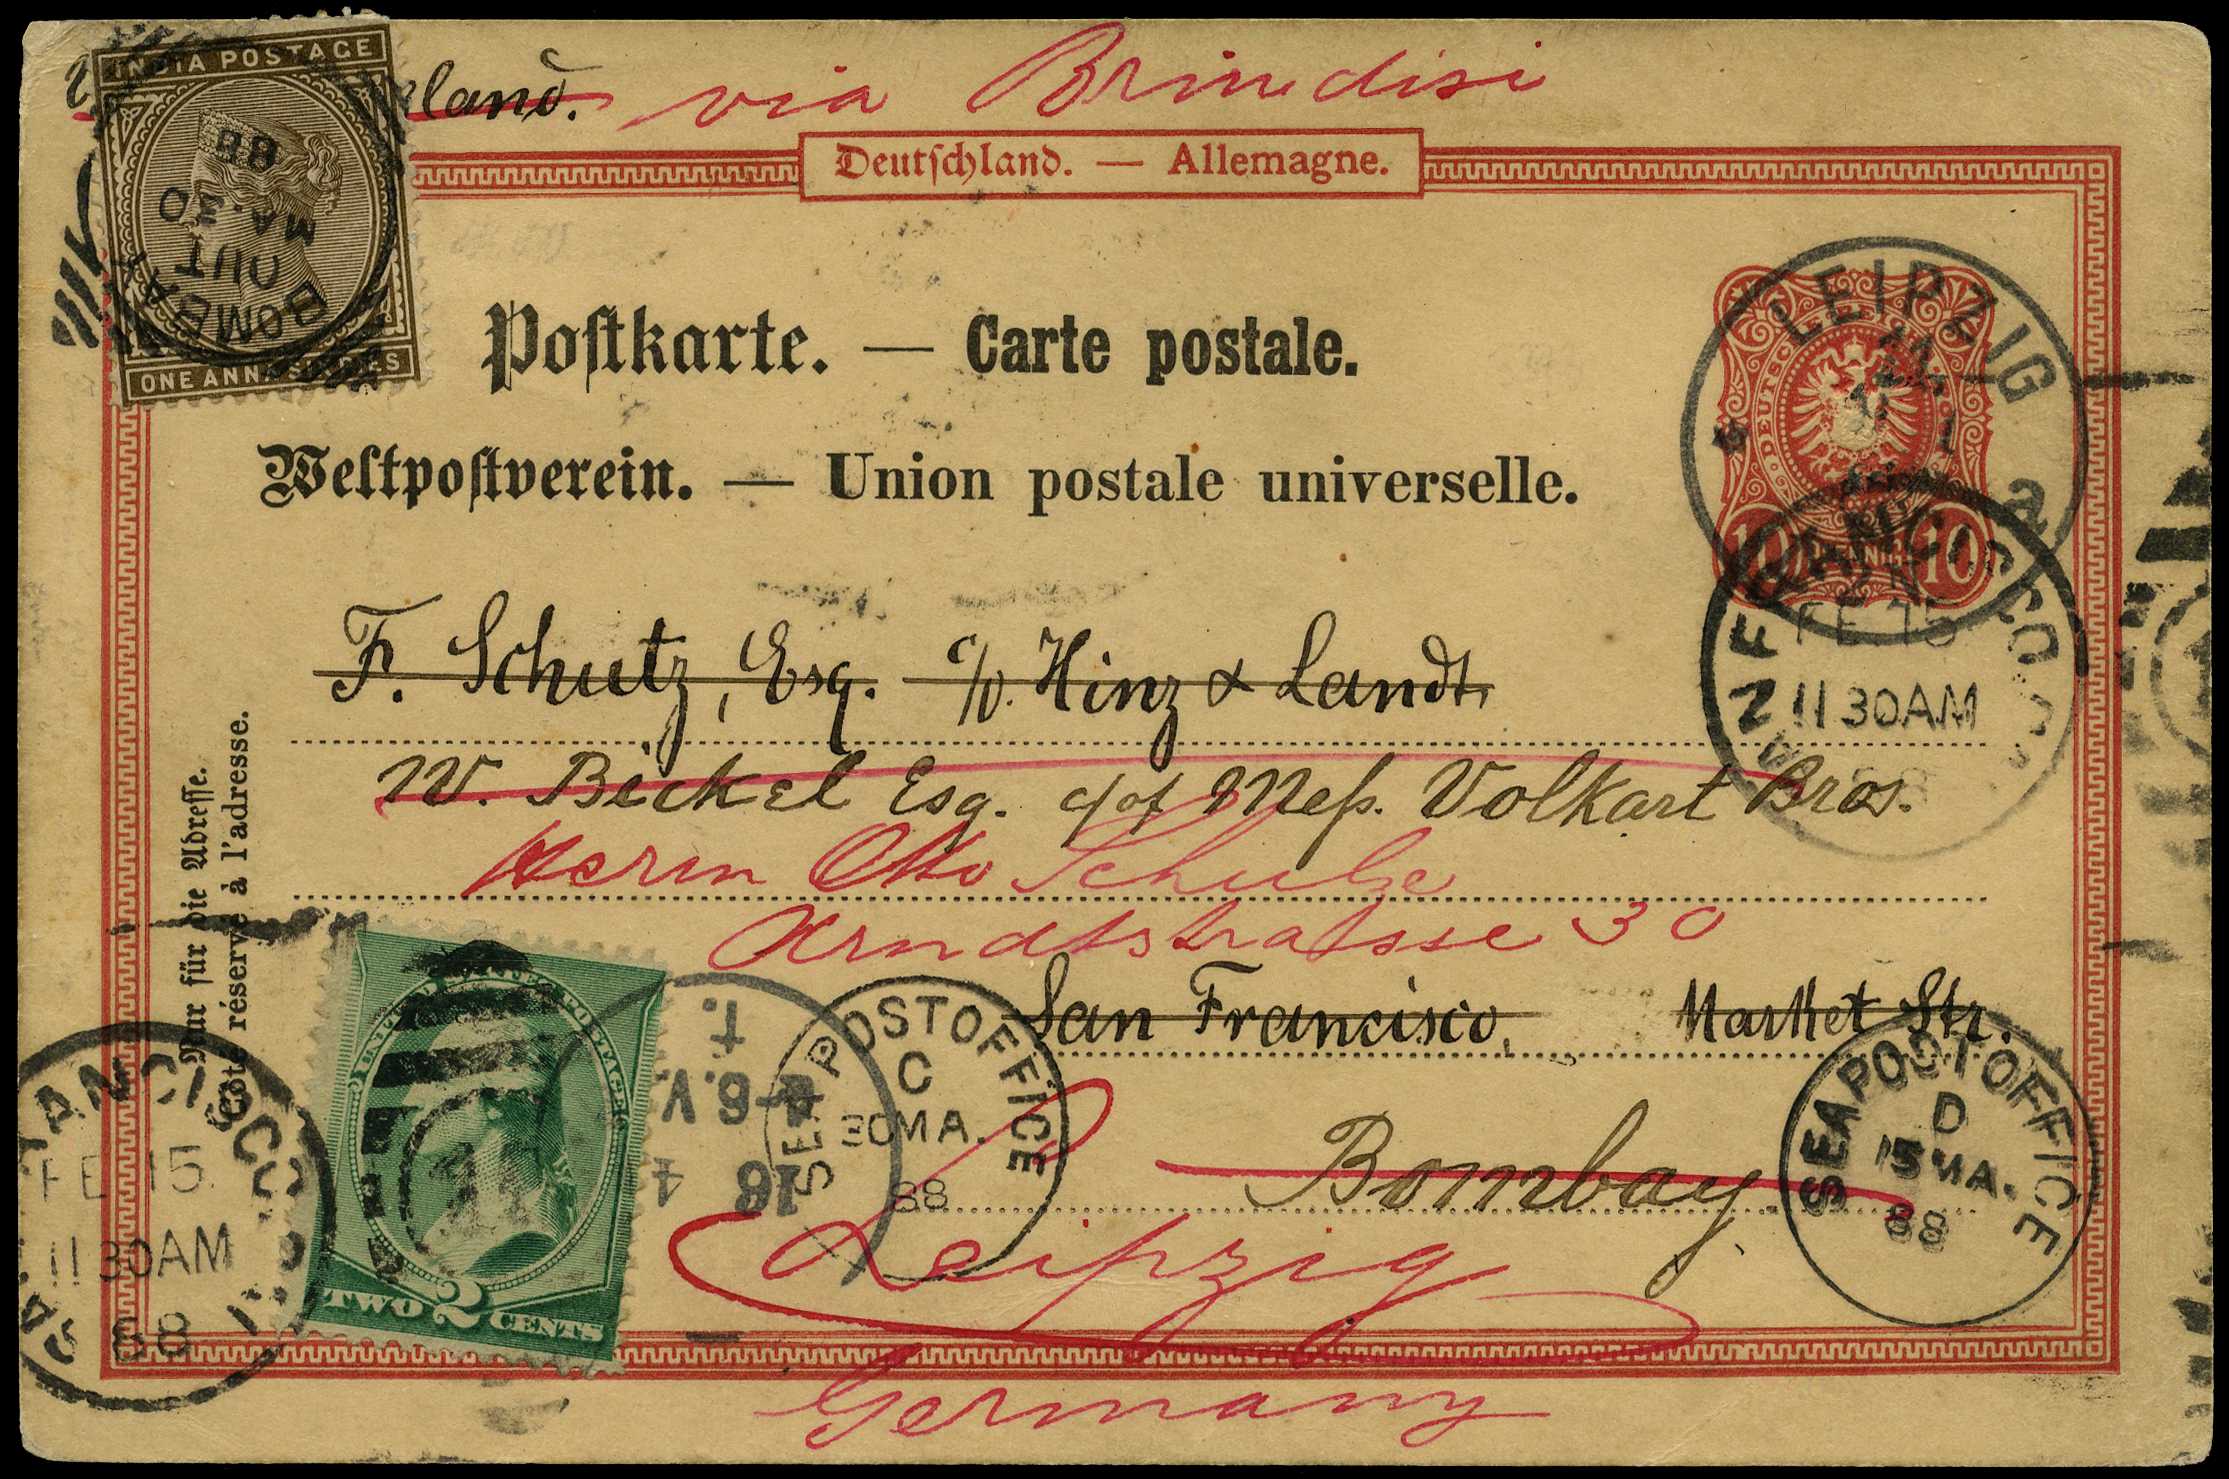 INDIA POSTAGE
BOMBAY
OUT
MA. 30
88
ONE ANNA SIX PIES
via Brindisi
Deutſchland. — Allemagne.
Poſtkarte. — Carte postale.
Weltpoſtverein. — Union postale universelle.
LEIPZIG
a
10 PFENNIG 10
SAN FRANCISCO
FE 15
11 30 AM
88
F. Schutz, Esq. c/o. Hinz & Landt,
W. Bickel Esq. c/of Mess. Volkart Bros.
Herrn Otto Schulze
Arndtstrasse 30
San Francisco, Market Str.
Bombay.
Leipzig
Germany
Nur für die Adreſſe.
Côté réservé à l'adresse.
UNITED STATES POSTAGE
TWO 2 CENTS
SAN FRANCISCO
FE 15
11 30 AM
88
SEA POST OFFICE
C
30 MA.
88
SEA POST OFFICE
D
15 MA.
88